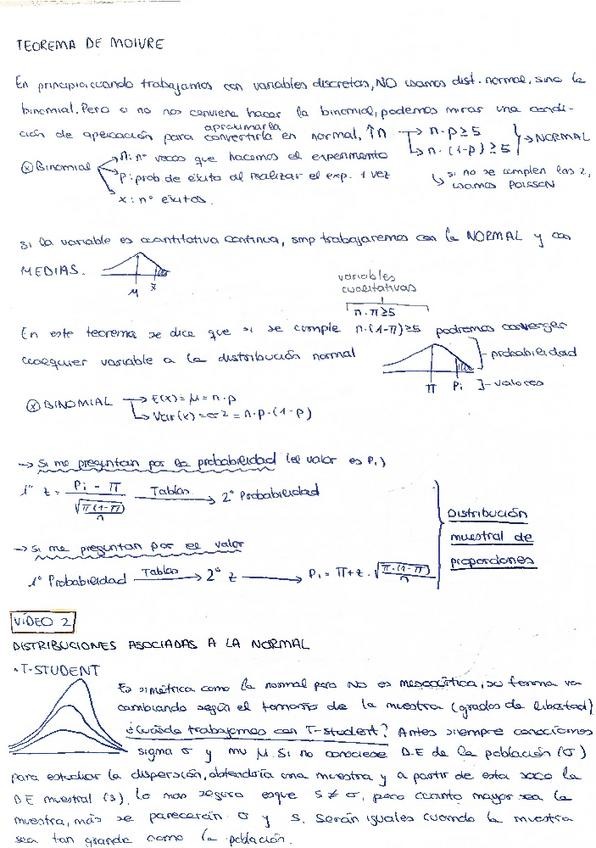 TEOREMA DE MOIVRE
En principio, cuando trabajamos con variables discretas, NO usamos dist. normal, sino la
binomial. Pero si no nos conviene hacer la binomial, podemos mirar una condi-
ción de aplicación para convertirla en normal, ↑n → n·p≥5 } → NORMAL
aproximarla
→ n·(1-p)≥5
⊗ Binomial → n: nº veces que hacemos el experimento
p: prob de éxito al realizar el exp. 1 vez
x: nº éxitos.
↳ si no se cumplen las 2,
usamos POISSON
Si la variable es cuantitativa continua, smp trabajaremos con la NORMAL y con
MEDIAS.
μ x̄
variables
cualitativas
n·π≥5
En este teorema se dice que si se cumple n·(1-π)≥5 podremos converger
cualquier variable a la distribución normal
}-probabilidad
π Pi ]-valores
⊗ BINOMIAL → E(x)=μ=n·p
↳ Var(x)=σ2=n·p·(1-p)
→ Si me preguntan por la probabilidad (el valor es Pi)
1º z = (Pi - π) / √(π(1-π)/n) Tablas → 2º Probabilidad
→ Si me preguntan por el valor
1º Probabilidad Tablas → 2º z → Pi = π+z·√(π·(1-π)/n)
Distribución
muestral de
proporciones
VIDEO 2
DISTRIBUCIONES ASOCIADAS A LA NORMAL
·T-STUDENT
Es simétrica como la normal pero NO es mesocúrtica, su forma va
cambiando según el tamaño de la muestra (grados de libertad)
¿Cuándo trabajamos con T-student? Antes siempre conocíamos
sigma σ y mu μ. Si no conociese D.E de la población (σ)
para estudiar la dispersión, obtendría una muestra y a partir de esta saco la
DE muestral (s). lo mas seguro es que S ≠ σ, pero cuanto mayor sea la
muestra, más se parecerán σ y s. Serán iguales cuando la muestra
sea tan grande como la población.